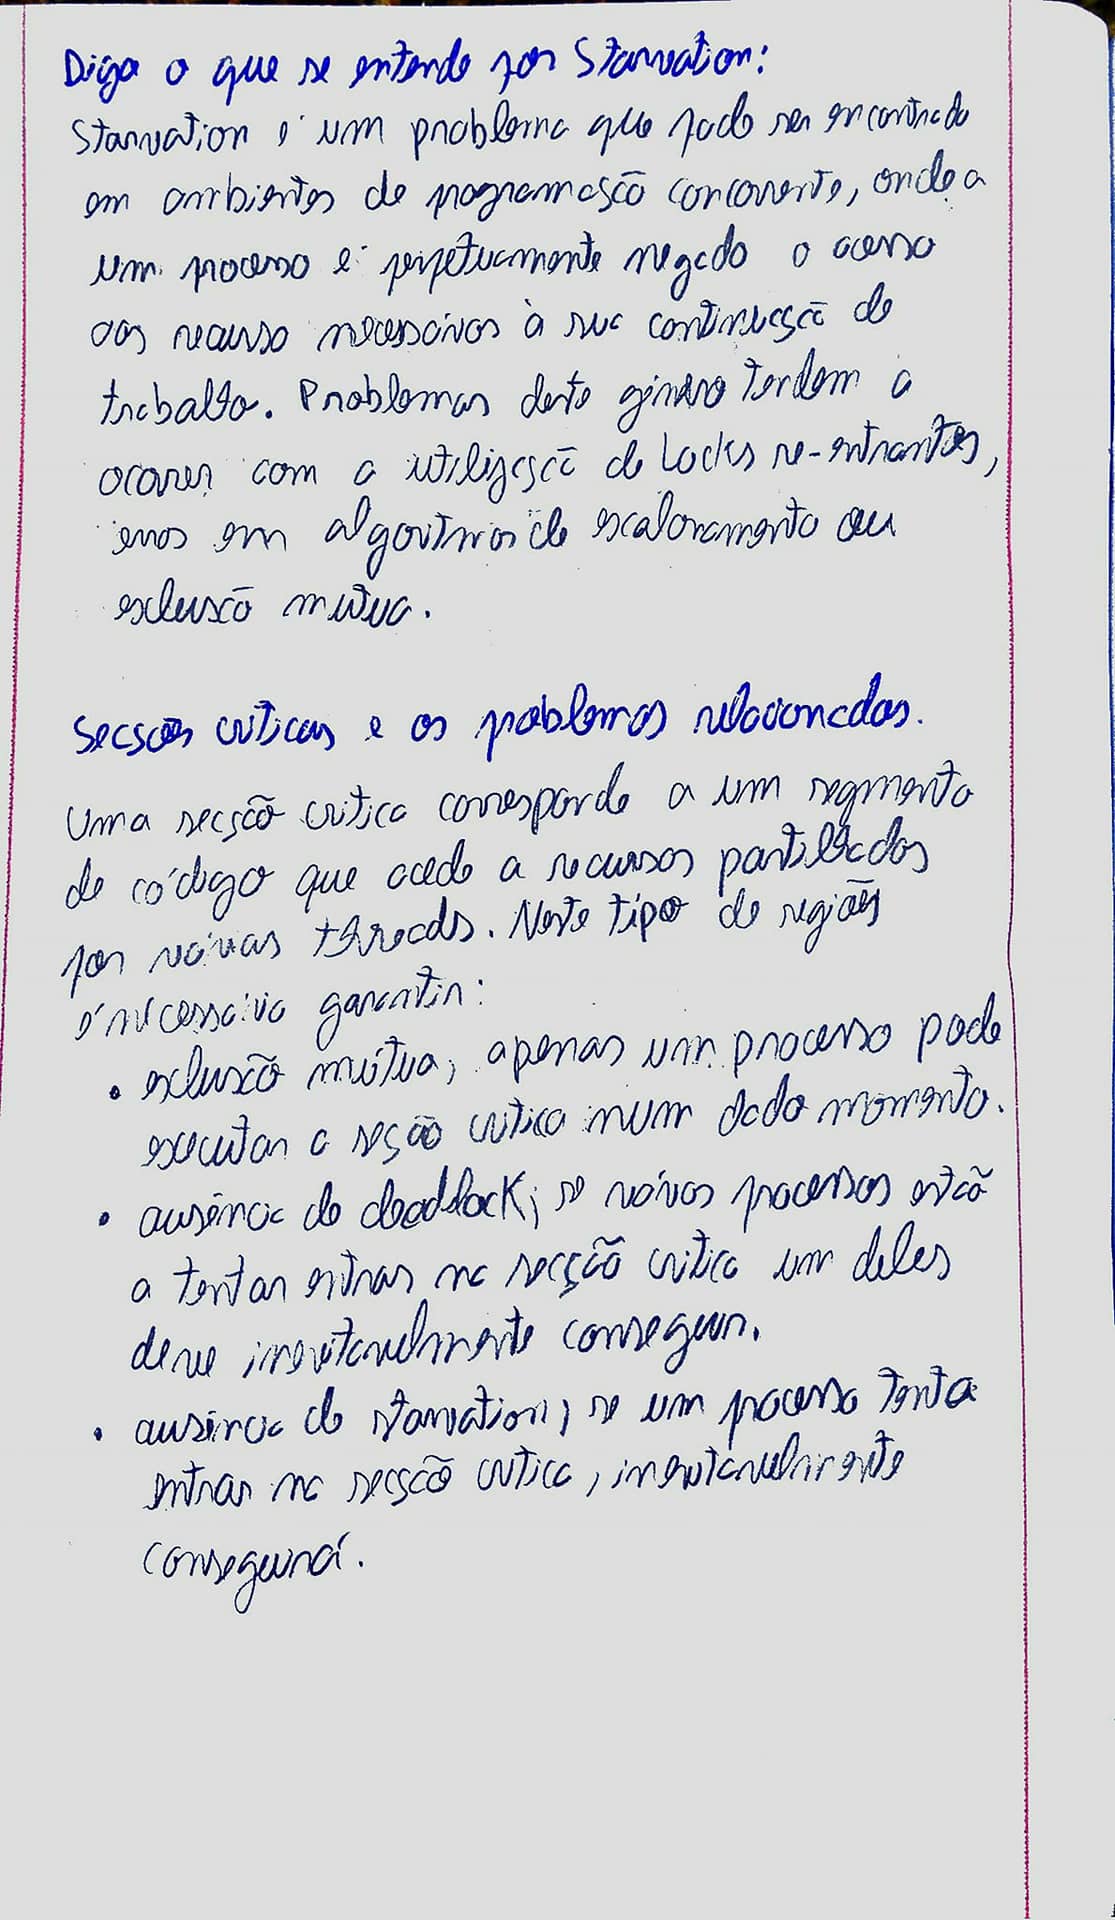 Diga o que se entende por Starvation:
Starvation é um problema que pode ser encontrado
em ambientes de programação concorrente, onde a
um processo é perpetuamente negado o acesso
aos recurso necessários à sua continuação de
trabalho. Problemas deste género tendem a
ocorrer com a utilização de Locks re-entrantes,
erros em algoritmos de escalonamento ou
exclusão mutua.
Secsões criticas e os problemas relacionados.
Uma secção critica corresponde a um segmento
de código que acede a recursos partilhados
por várias threads. Neste tipo de regiões
é necessário garantir:
• exclusão mútua, apenas um processo pode
executar a seção critica num dado momento.
• ausência de deadlock, se vários processos estão
a tentar entrar na secção critica um deles
deve inevitavelmente conseguir.
• ausência de starvation, se um processo tenta
entrar na secção critica, inevitavelmente
conseguirá.